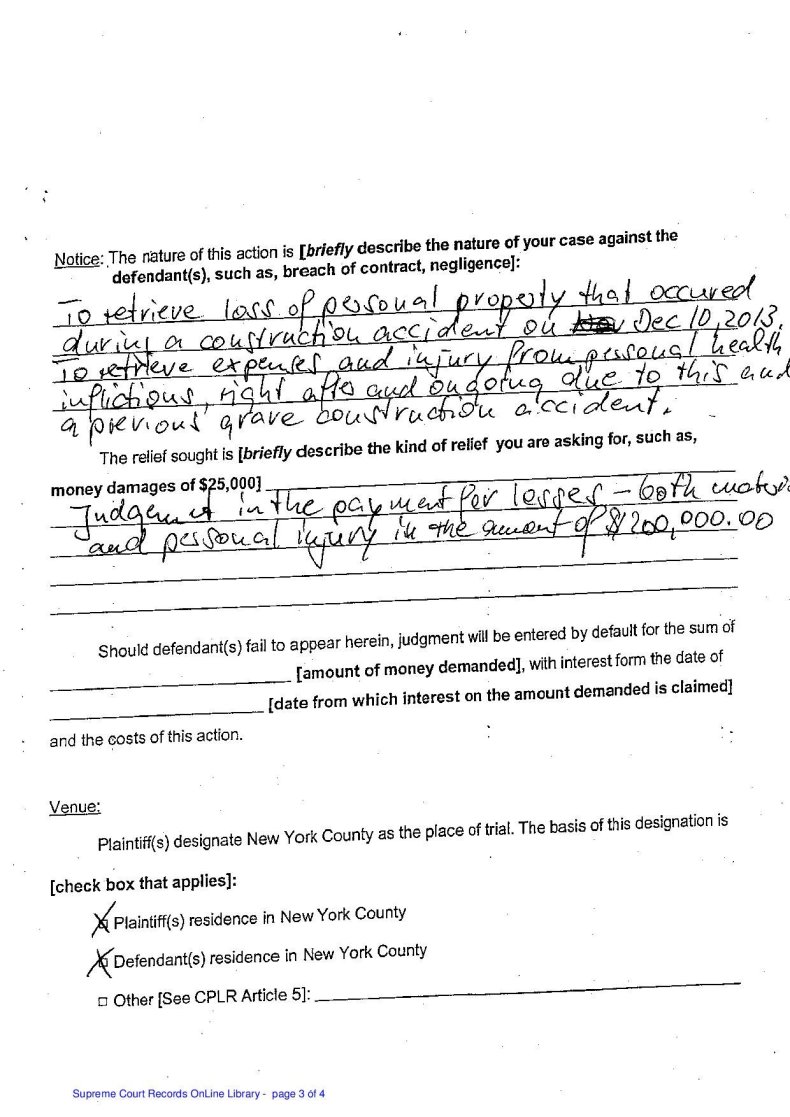 Notice: The nature of this action is [briefly describe the nature of your case against the
defendant(s), such as, breach of contract, negligence]:
To retrieve loss of personal property that occured
during a construction accident on Dec 10, 2013.
To retrieve expenses and injury from personal health
inflictions, right after and ongoing due to this and
a previous grave construction accident.
The relief sought is [briefly describe the kind of relief you are asking for, such as,
money damages of $25,000]
Judgement in the payment for losses - both
and personal injury in the amount of $200,000.00
Should defendant(s) fail to appear herein, judgment will be entered by default for the sum of
[amount of money demanded], with interest form the date of
[date from which interest on the amount demanded is claimed]
and the costs of this action.
Venue:
Plaintiff(s) designate New York County as the place of trial. The basis of this designation is
[check box that applies]:
Plaintiff(s) residence in New York County
Defendant(s) residence in New York County
□ Other [See CPLR Article 5]:
Supreme Court Records OnLine Library - page 3 of 4